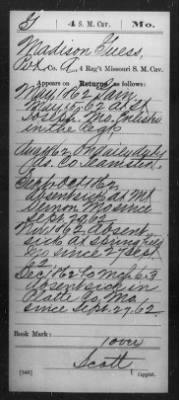 G | 4 S. M. Cav. | Mo.
Madison Guess,
Pvt., Co. A, 4 Reg't Missouri S. M. Cav.
Appears on Returns as follows:
May 1862
May 10-62 at St
Joseph, Mo. Enlisted
in the Regt
Aug/62 On daily duty
as Co. Teamster.
Sept & Oct 1862
absent sick at Mt
Vernon Mo since
Sept 27/62
Nov 1862 Absent
sick at Springfield
Mo since 27 Sept
62
Dec 1862 to Mch 63
absent sick in
Platte Co, Mo.
since Sept. 27, 62.
Book Mark:
over
Scott
Copyist.